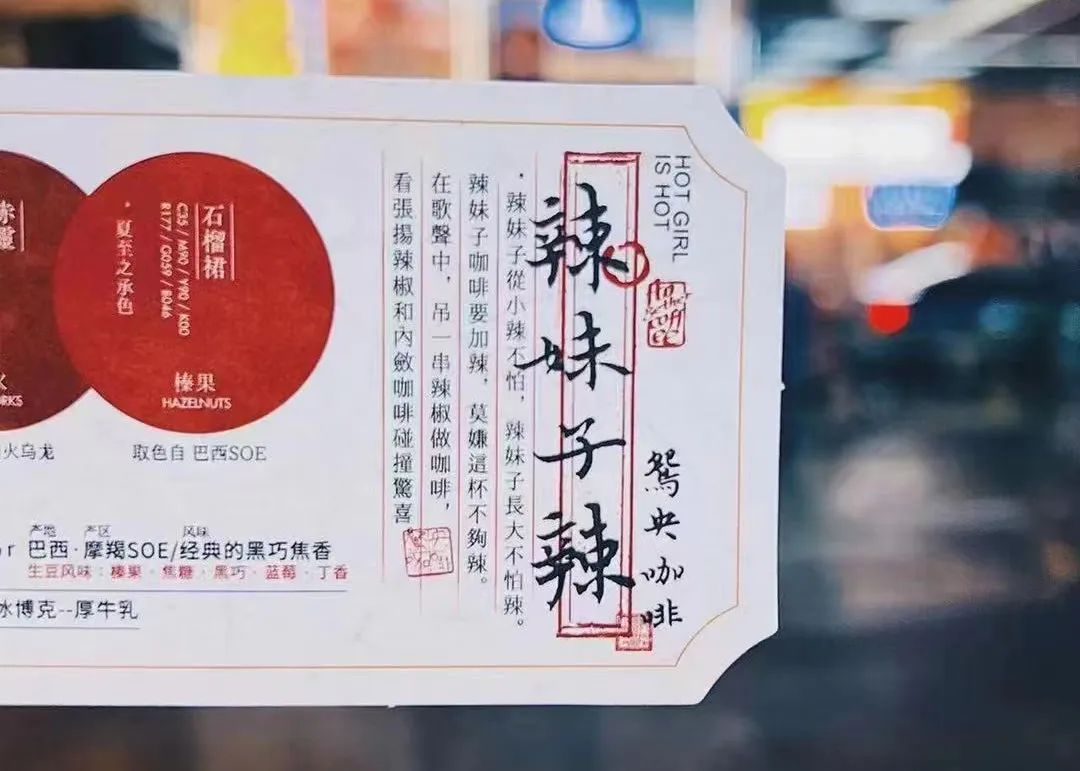 HOT GIRL
IS HOT
辣妹子辣
鴛央咖啡
·辣妹子從小辣不怕，辣妹子長大不怕辣。
辣妹子咖啡要加辣，莫嫌這杯不夠辣。
在歌聲中，吊一串辣椒做咖啡，
看張揚辣椒和內斂咖啡碰撞驚喜
石榴裙
C35 / M90 / Y90 / K00
R177 / G059 / B046
·夏至之承色
榛果
HAZELNUTS
取色自 巴西SOE
RKS
火乌龙
产地 产区 风味
or 巴西·摩羯SOE/经典的黑巧焦香
生豆风味：榛果·焦糖·黑巧·蓝莓·丁香
冰博克--厚牛乳